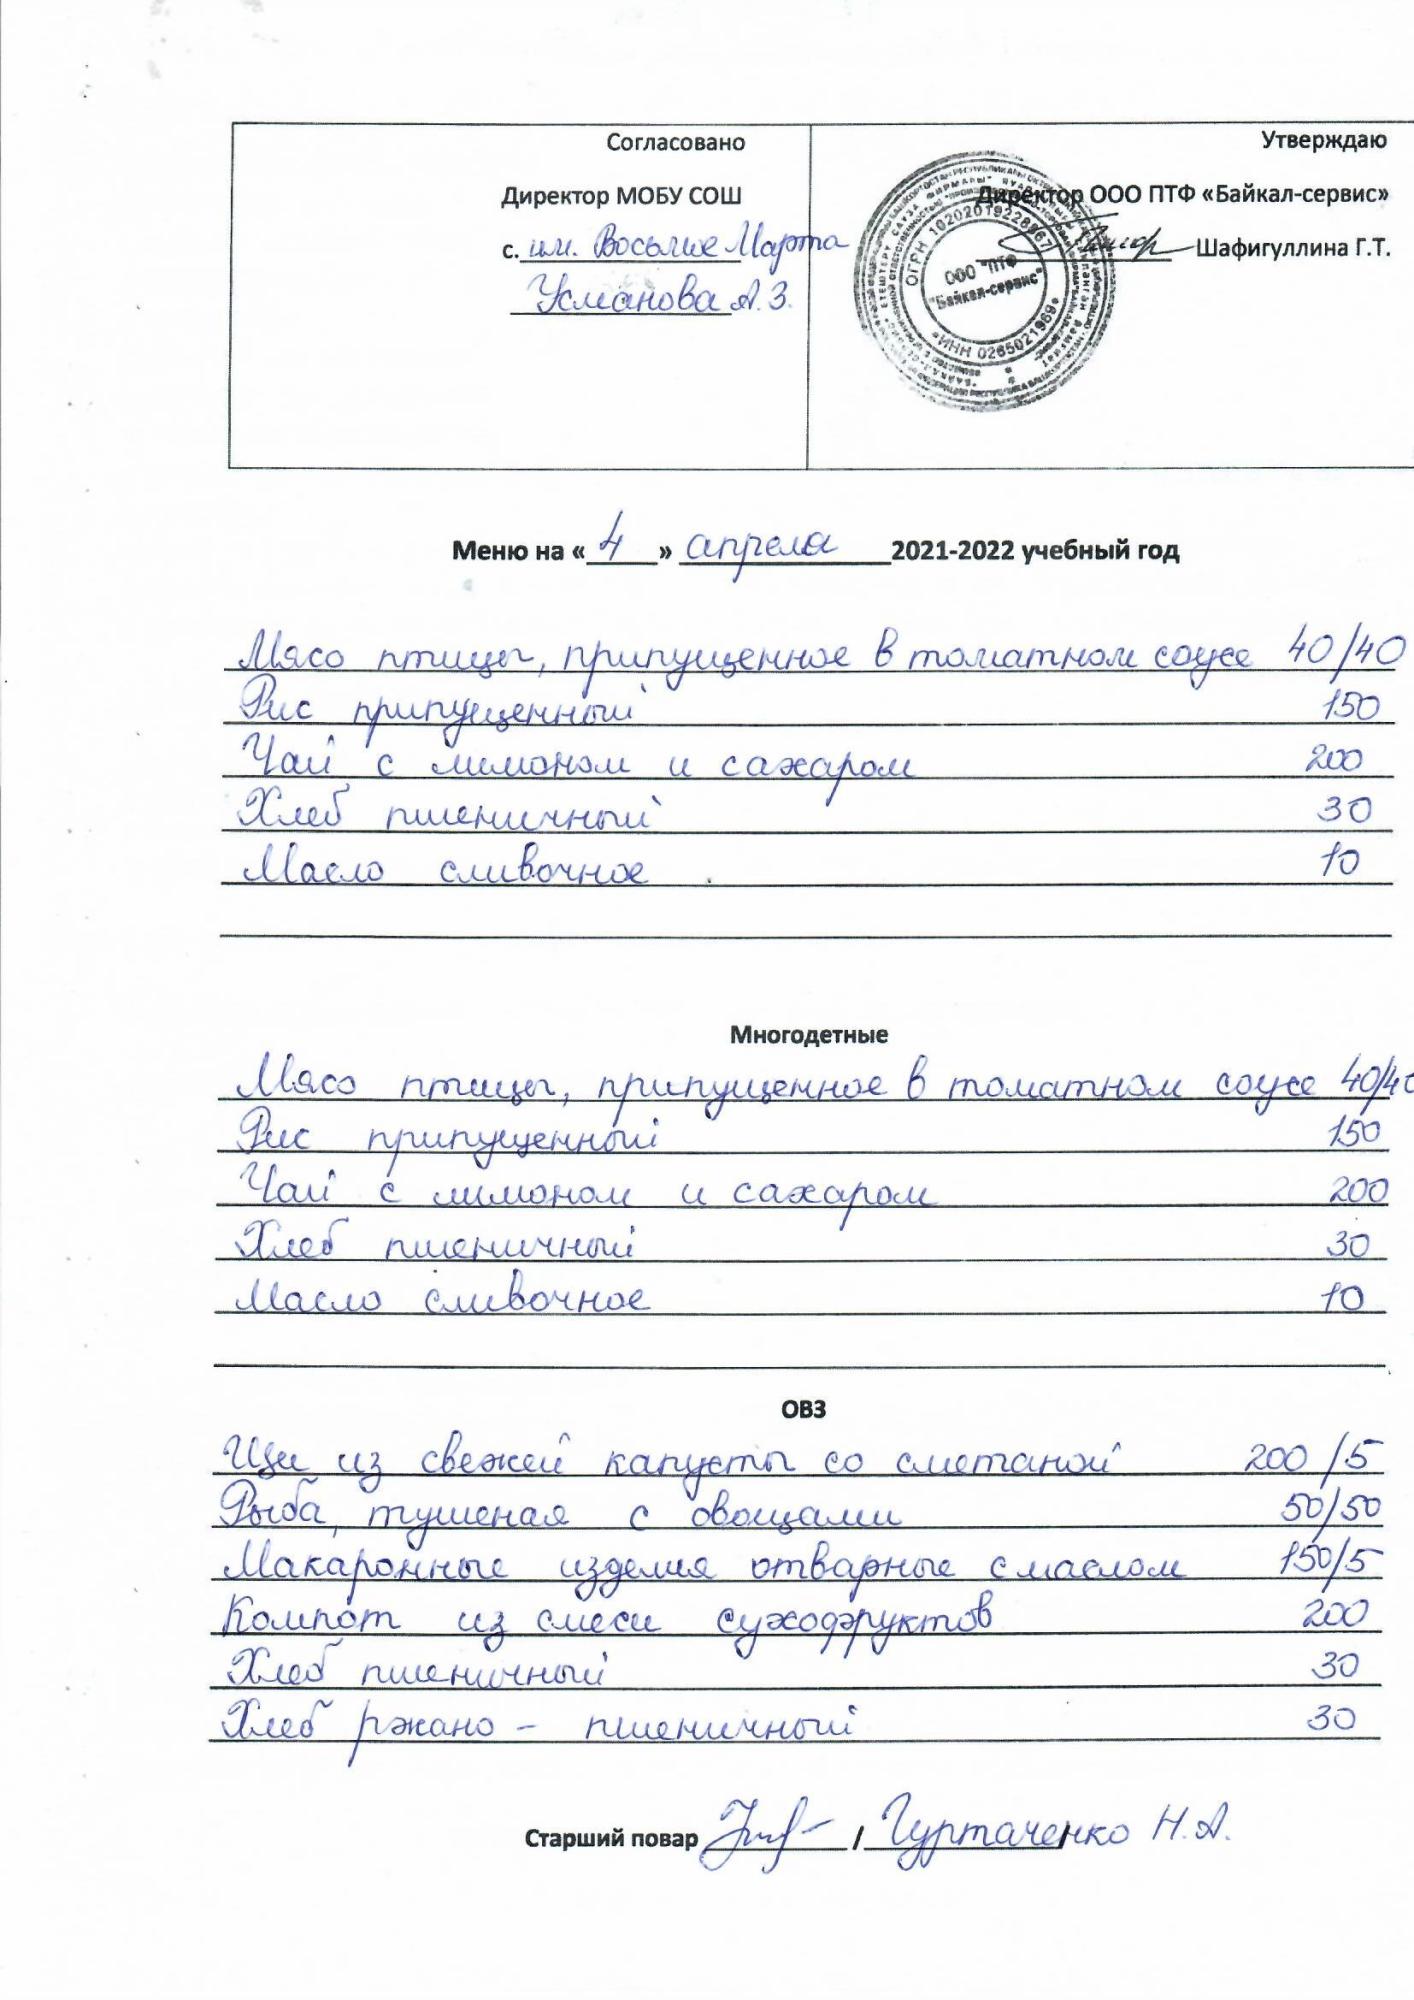 Согласовано
Директор МОБУ СОШ
с. им. Восьмое Марта
Усманова А.З.
Утверждаю
Директор ООО ПТФ «Байкал-сервис»
Шафигуллина Г.Т.
ОГРН 1020201922896
ООО "ПТФ
"Байкал-сервис"
ИНН 0265021969
Меню на « 4 » апреля 2021-2022 учебный год
Мясо птицы, припущенное в томатном соусе 40/40
Рис припущенный 150
Чай с лимоном и сахаром 200
Хлеб пшеничный 30
Масло сливочное 10
Многодетные
Мясо птицы, припущенное в томатном соусе 40/40
Рис припущенный 150
Чай с лимоном и сахаром 200
Хлеб пшеничный 30
Масло сливочное 10
ОВЗ
Щи из свежей капусты со сметаной 200/5
Рыба, тушеная с овощами 50/50
Макаронные изделия отварные с маслом 150/5
Компот из смеси сухофруктов 200
Хлеб пшеничный 30
Хлеб ржано - пшеничный 30
Старший повар / Гуртаченко Н.А.